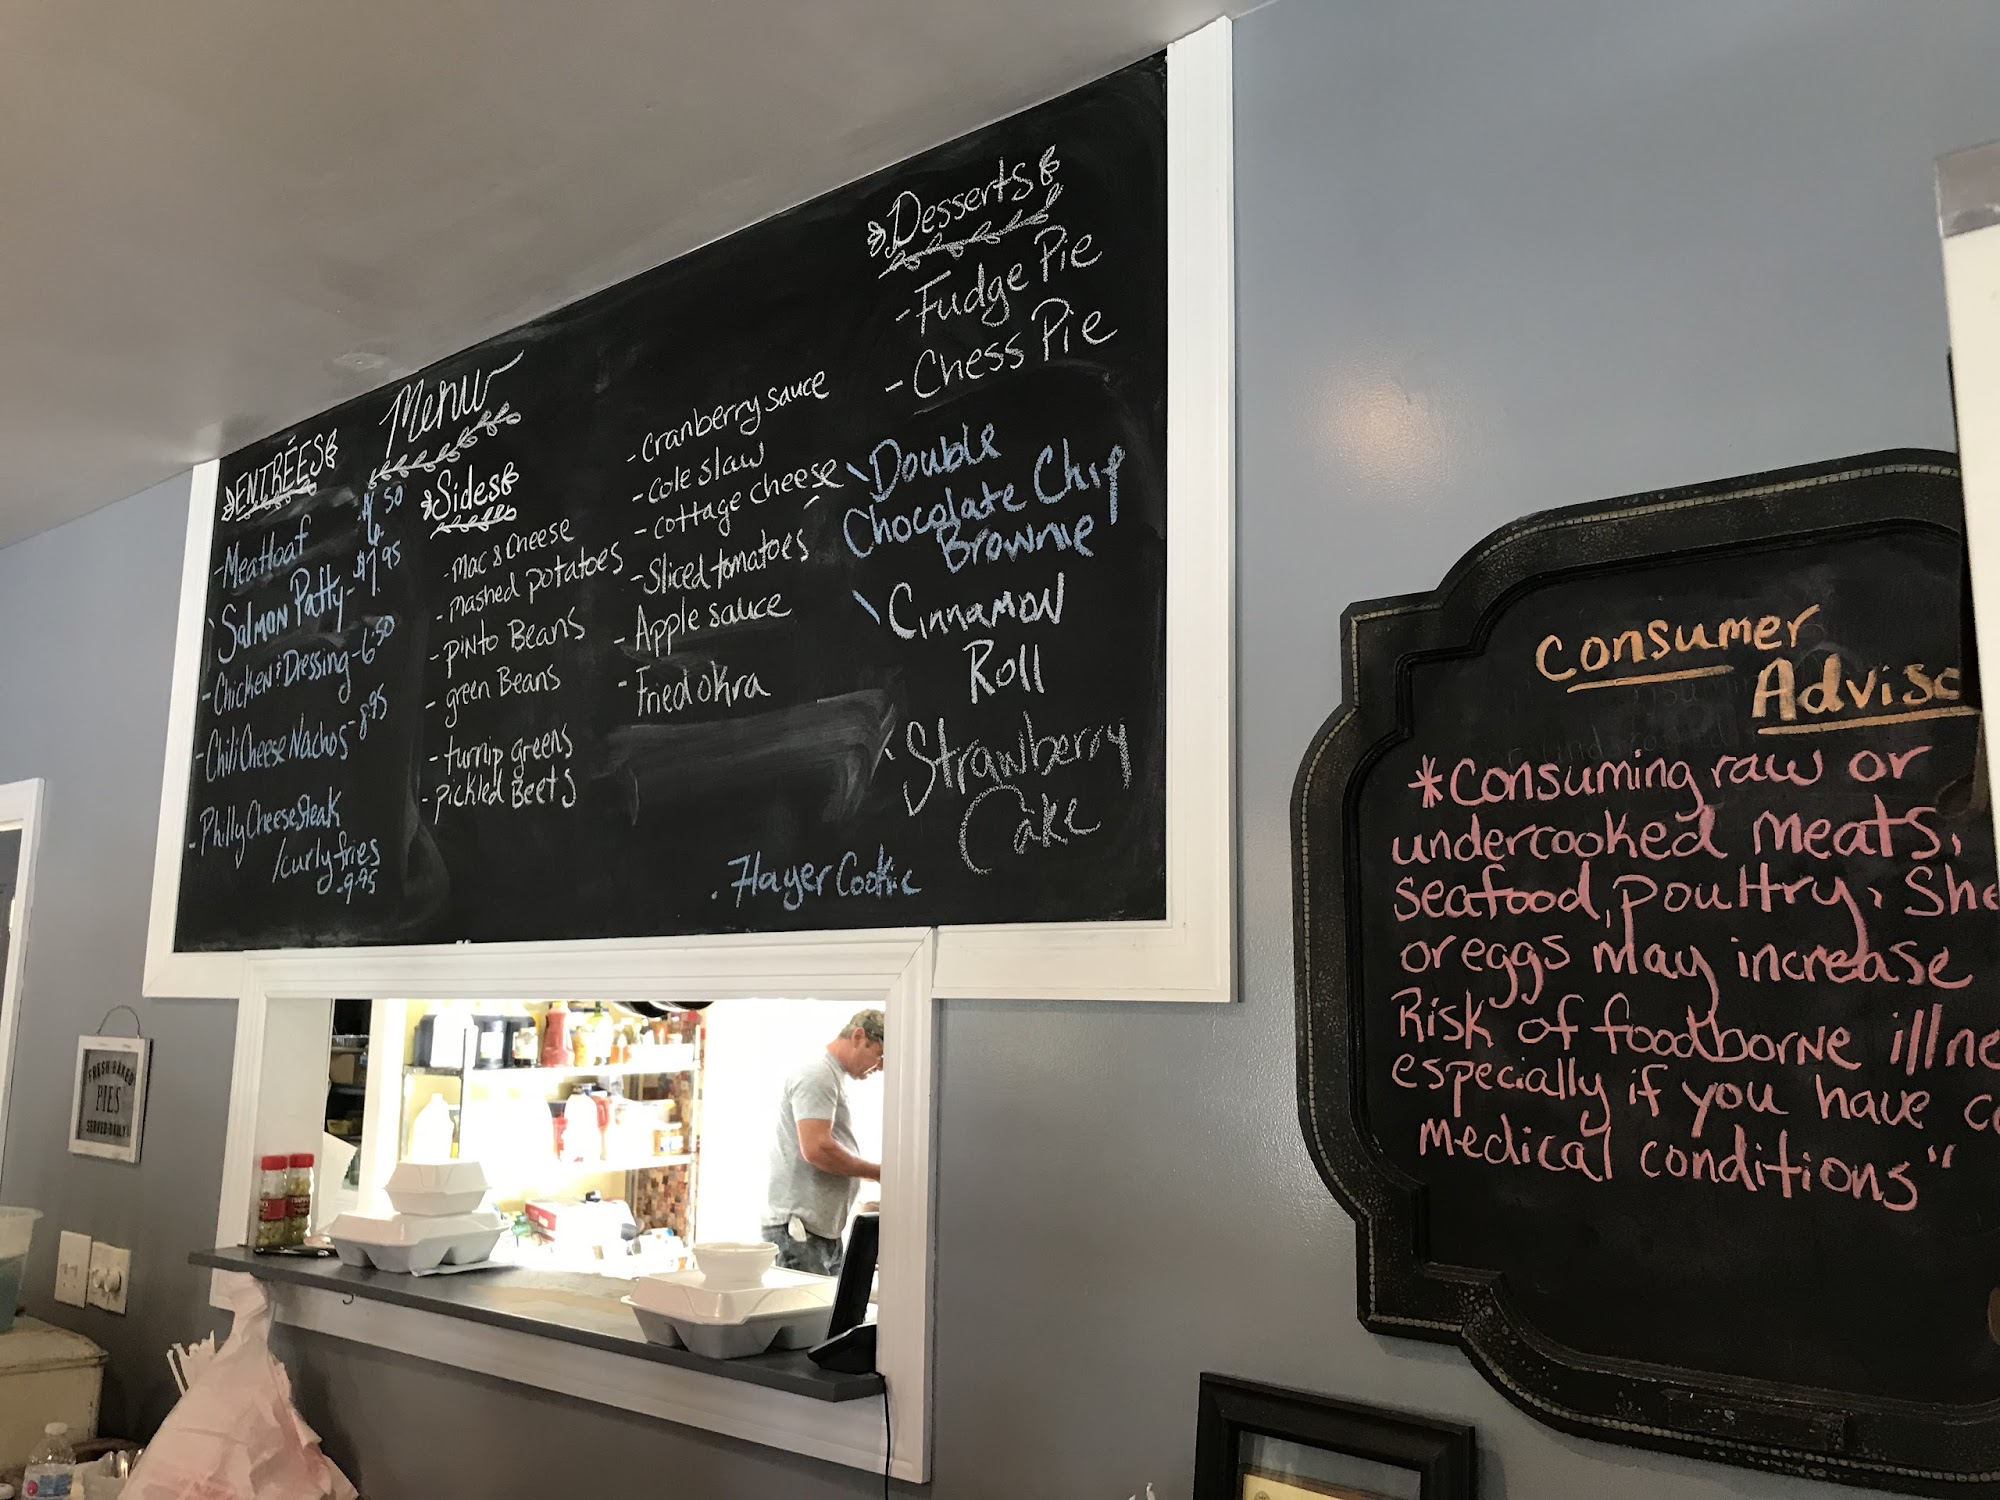 Menu
ENTRÉES
- Meatloaf - $6.50
Salmon Patty - $7.95
- Chicken & Dressing - 6.50
- Chili Cheese Nachos - 8.95
- Philly Cheese Steak
/curly fries
- 9.95
Sides
- Mac & Cheese
- Mashed Potatoes
- pinto Beans
- green Beans
- turnip greens
- pickled Beets
- Cranberry sauce
- Cole slaw
- Cottage cheese
- Sliced tomatoes
- Apple sauce
- Fried okra
Desserts
- Fudge Pie
- Chess Pie
Double
Chocolate Chip
Brownie
Cinnamon
Roll
Strawberry
Cake
. 7 layer Cookie
Consumer
Advis
*Consuming raw or
undercooked meats,
seafood, poultry, She
or eggs may increase
Risk of foodborne illne
especially if you have
medical conditions"
FRESH BAKED
PIES
SERVED DAILY